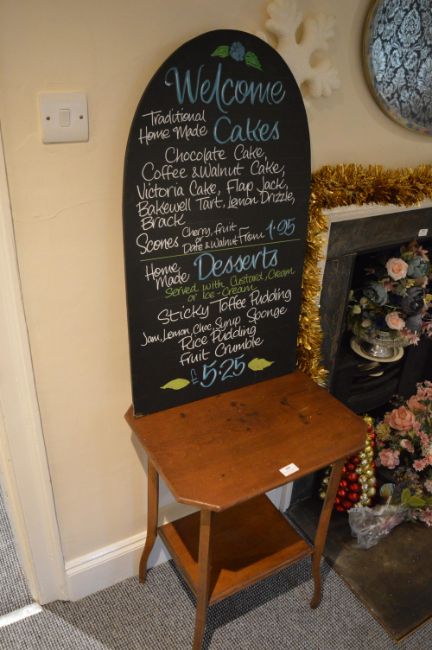 Welcome
Traditional
Home Made Cakes
Chocolate Cake,
Coffee & Walnut Cake,
Victoria Cake, Flap Jack,
Bakewell Tart, Lemon Drizzle,
Brack
Scones Cherry, fruit or Date & Walnut From 1.95
Home Made Desserts
Served with Custard, Cream
or Ice-Cream
Sticky Toffee Pudding
Jam, Lemon, Choc, Syrup Sponge
Rice Pudding
Fruit Crumble
£5.25